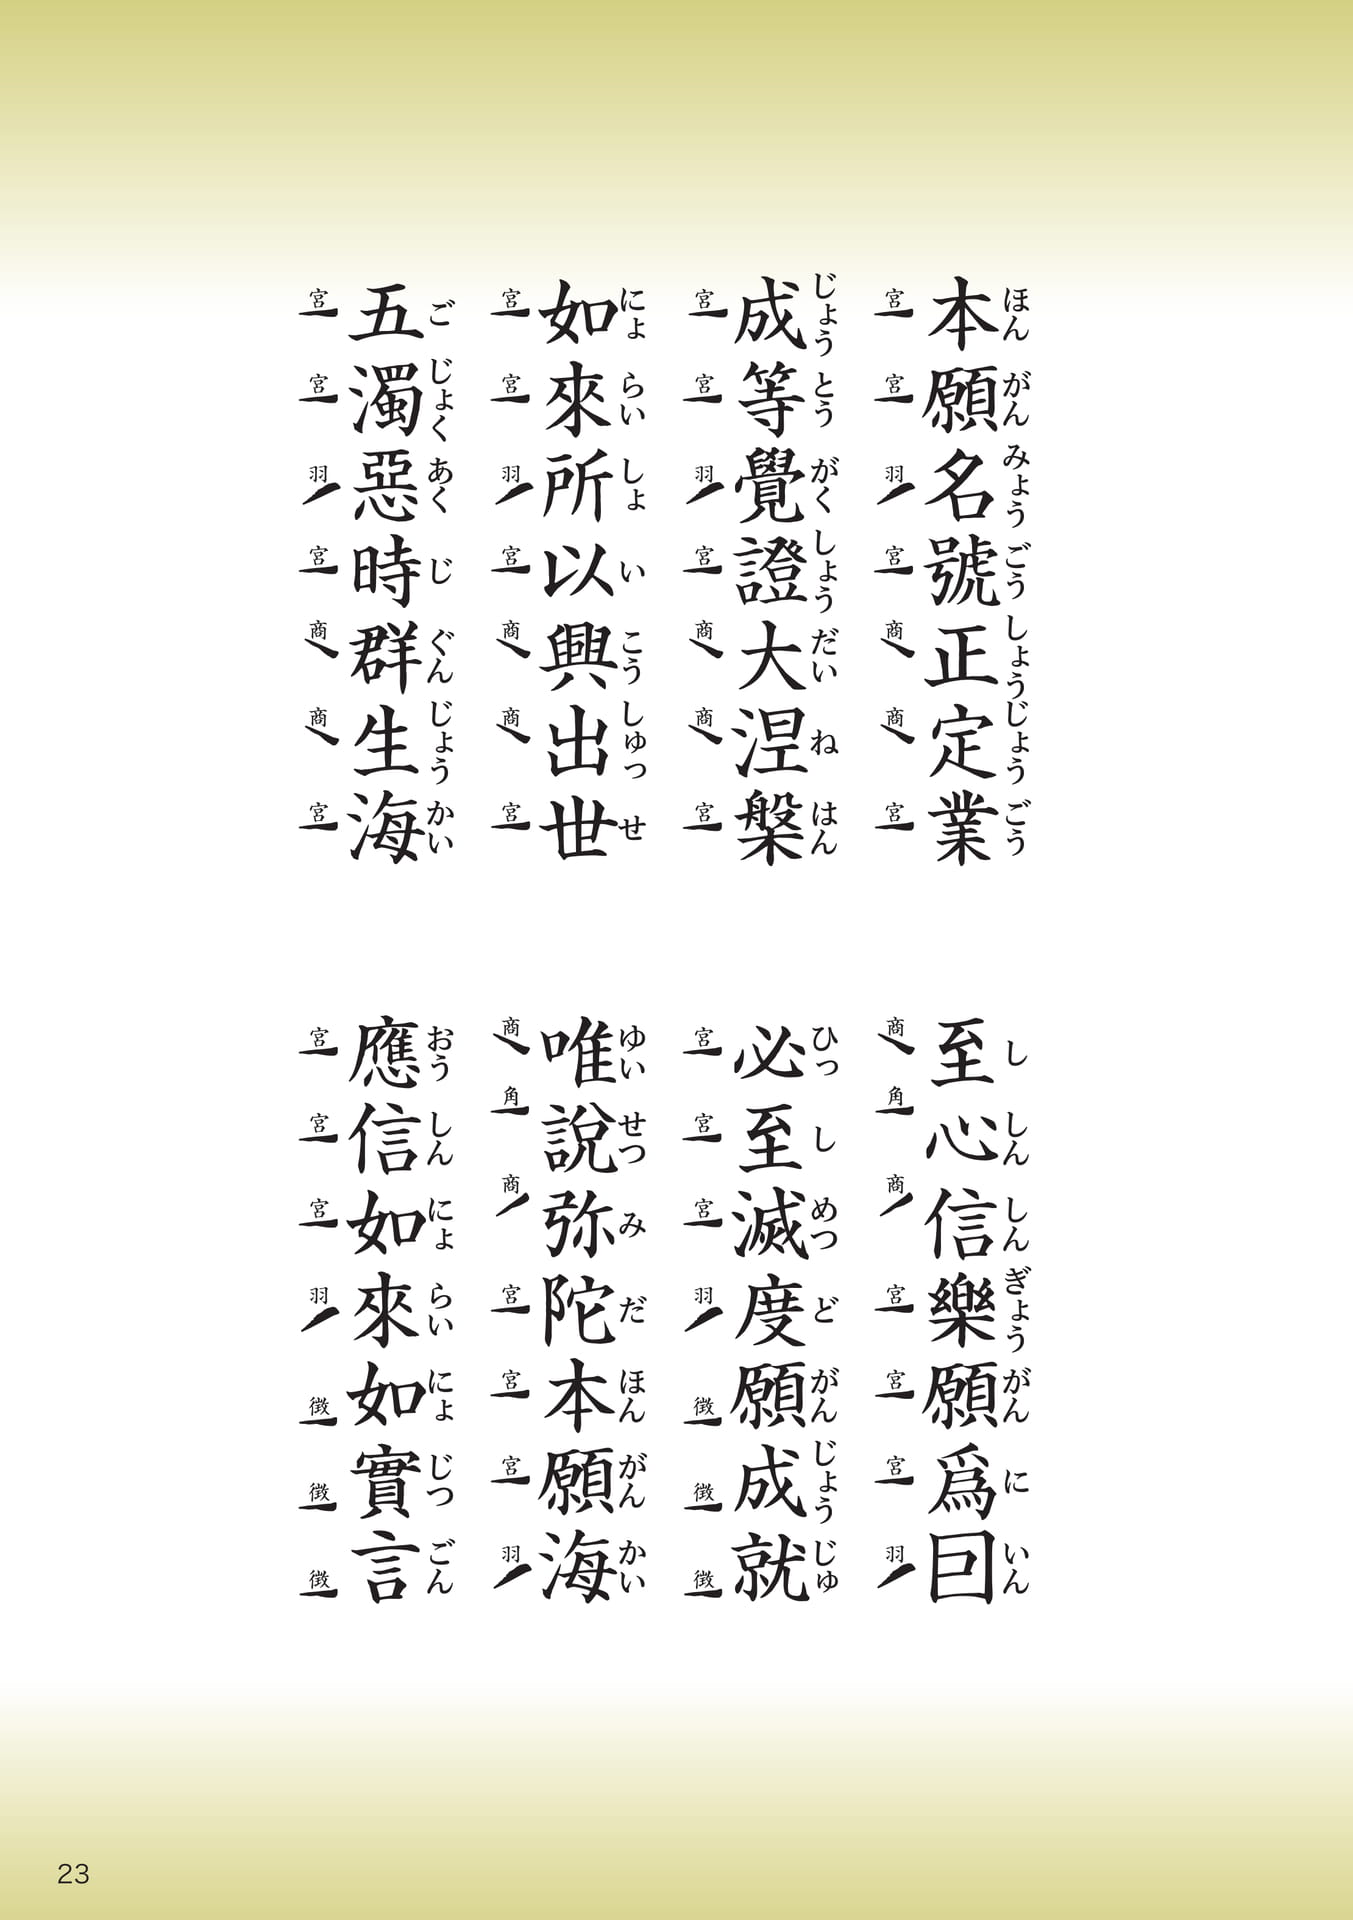 本願名號正定業
ほん がん みょう ごう しょう じょう ごう
宮 宮 羽 宮 商 商 宮
至心信樂願爲囙
し しん しん ぎょう がん に いん
商 角 商 宮 宮 宮 羽
成等覺證大涅槃
じょう とう がく しょう だい ね はん
宮 宮 羽 宮 商 商 宮
必至滅度願成就
ひっ し めつ ど がん じょう じゅ
宮 宮 宮 羽 徴 徴 徴
如來所以興出世
にょ らい しょ い こう しゅっ せ
宮 宮 羽 宮 商 商 宮
唯說弥陀本願海
ゆい せつ み だ ほん がん かい
商 角 商 宮 宮 宮 羽
五濁惡時群生海
ご じょく あく じ ぐん じょう かい
宮 宮 羽 宮 商 商 宮
應信如來如實言
おう しん にょ らい にょ じつ ごん
宮 宮 宮 羽 徴 徴 徴
23